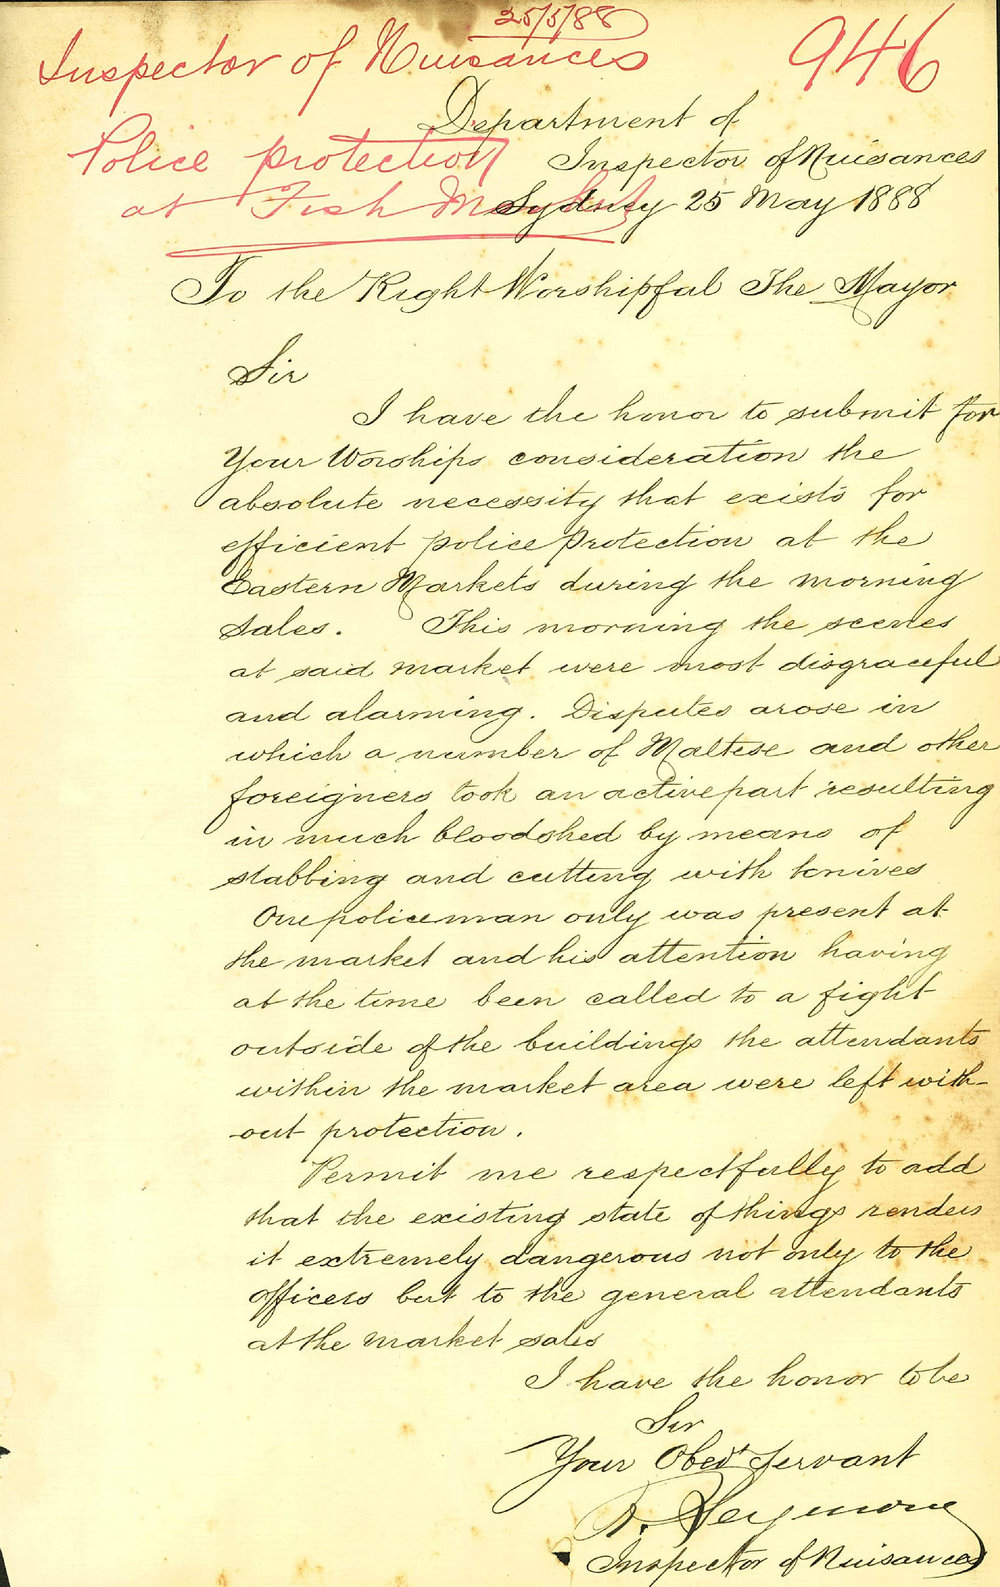 25/5/88
Inspector of Nuisances
946
Police protection
at Fish Market
Department of
Inspector of Nuisances
Sydney 25 May 1888
To the Right Worshipful The Mayor
Sir
I have the honor to submit for
Your Worships consideration the
absolute necessity that exists for
efficient police protection at the
Eastern Markets during the morning
sales. This morning the scenes
at said market were most disgraceful
and alarming. Disputes arose in
which a number of Maltese and other
foreigners took an active part resulting
in much bloodshed by means of
stabbing and cutting with knives
One policeman only was present at
the market and his attention having
at the time been called to a fight
outside of the buildings the attendants
within the market area were left with-
-out protection.
Permit me respectfully to add
that the existing state of things renders
it extremely dangerous not only to the
officers but to the general attendants
at the market sales
I have the honor to be
Sir
Your Obedt Servant
R. Seymour
Inspector of Nuisances